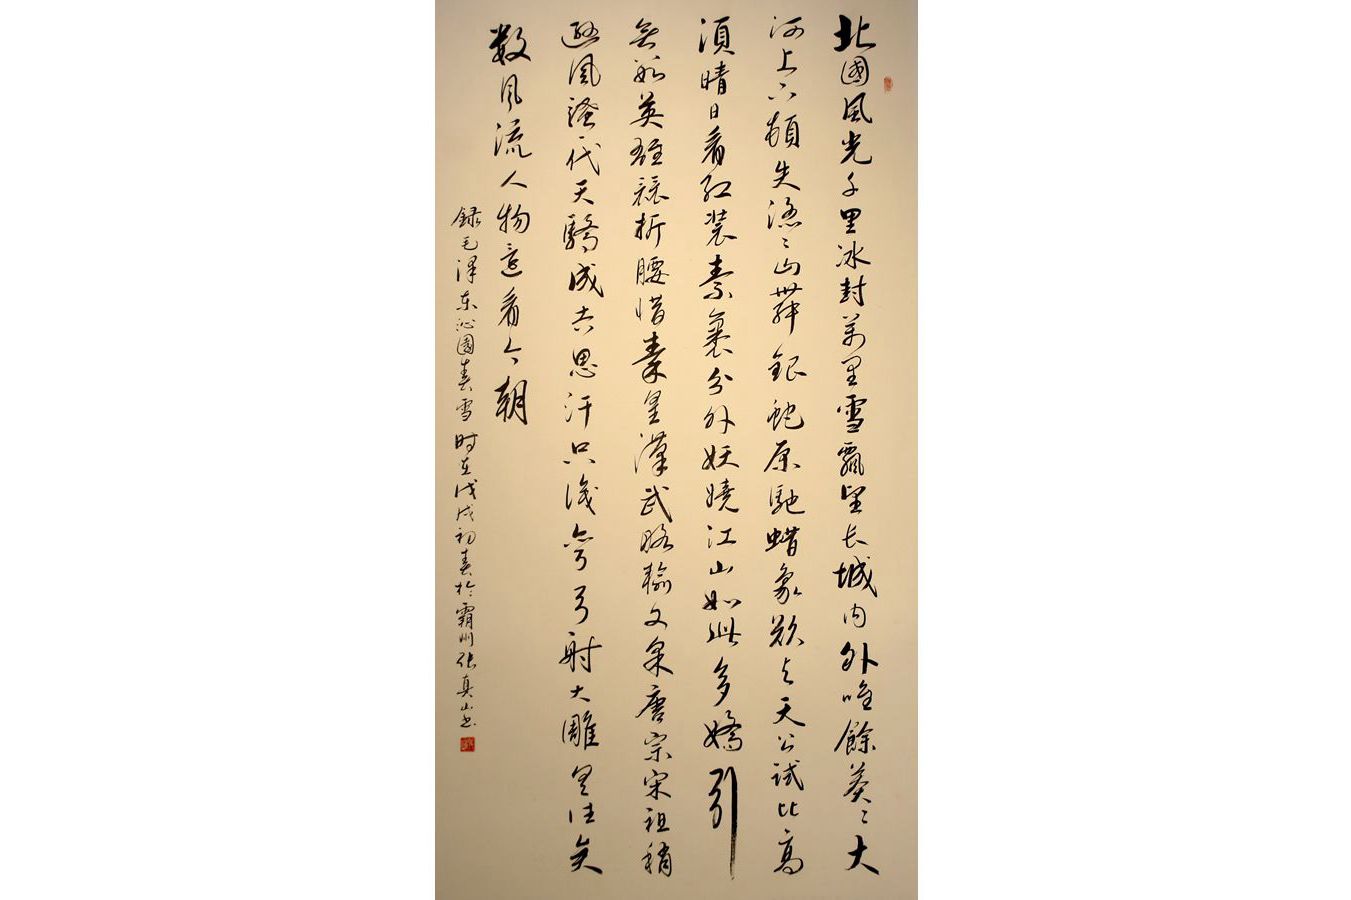 北國風光千里冰封萬里雪飄望长城内外唯餘莽〻大
河上下頓失滔〻山舞銀蛇原馳蜡象欲与天公試比高
須晴日看红装素裹分外妖嬈江山如此多嬌引
無數英雄競折腰惜秦皇漢武略輸文采唐宗宋祖稍
遜風騷一代天驕成吉思汗只識彎弓射大雕俱往矣
数風流人物還看今朝
録毛泽东沁園春雪时在戊戌初春於霸州张真山书